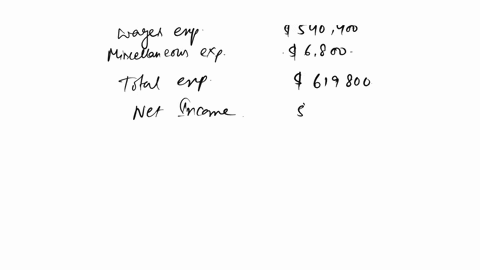 Wages exp. $ 540,400
Miscellaneous exp. $ 6,800.
Total exp $ 619800
Net Income $